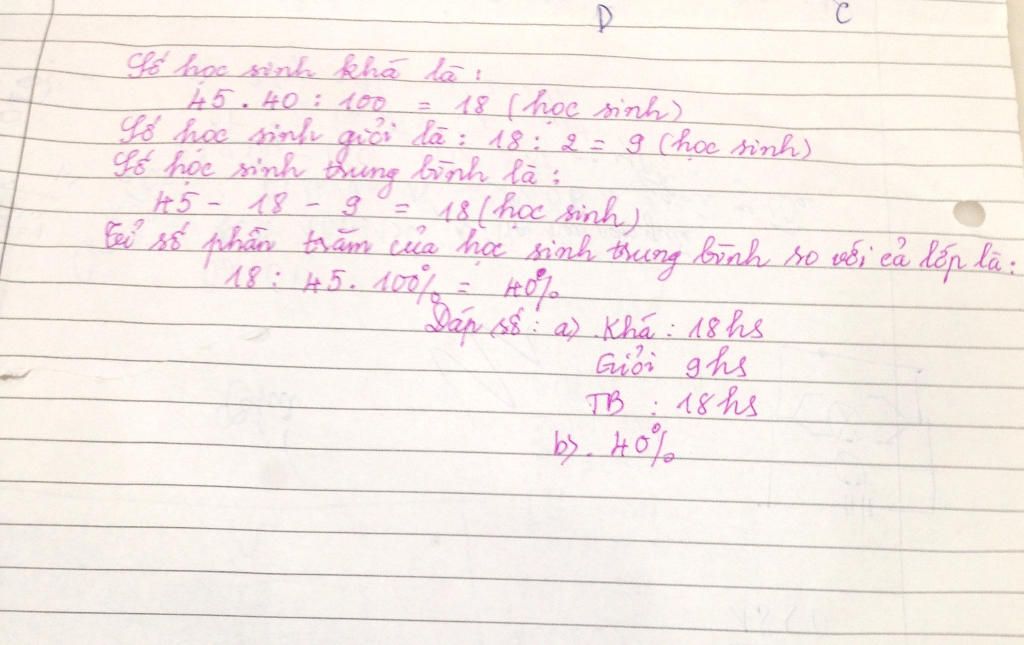 D C
Số học sinh khá là :
45 . 40 : 100 = 18 (học sinh)
Số học sinh giỏi là : 18 : 2 = 9 (học sinh)
Số học sinh trung bình là :
45 - 18 - 9 = 18 (học sinh)
Tỉ số phần trăm của học sinh trung bình so với cả lớp là :
18 : 45 . 100% = 40%
Đáp số : a) Khá : 18 hs
Giỏi 9 hs
TB : 18 hs
b). 40%